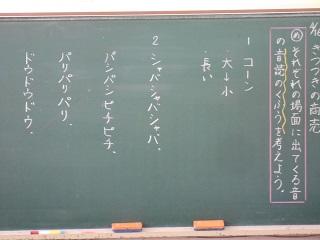 きつつきの商売
めそれぞれの場面に出てくる音
の音読のくふうを考えよう。
1 コーン
・大→小
・長い
2 シャバシャバシャバ、
パシパシピチピチ、
パリパリパリ、
ドウドウドウ、